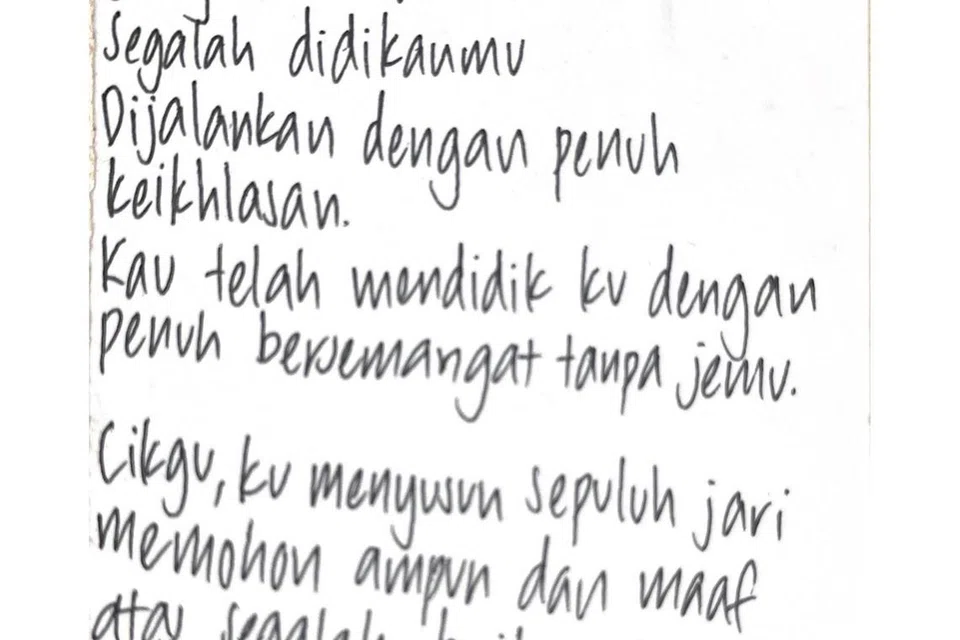 segalah didikanmu
Dijalankan dengan penuh
keikhlasan.
Kau telah mendidik ku dengan
penuh bersemangat tanpa jemu.
Cikgu, ku menyusun sepuluh jari
memohon ampun dan maaf
atas segalah